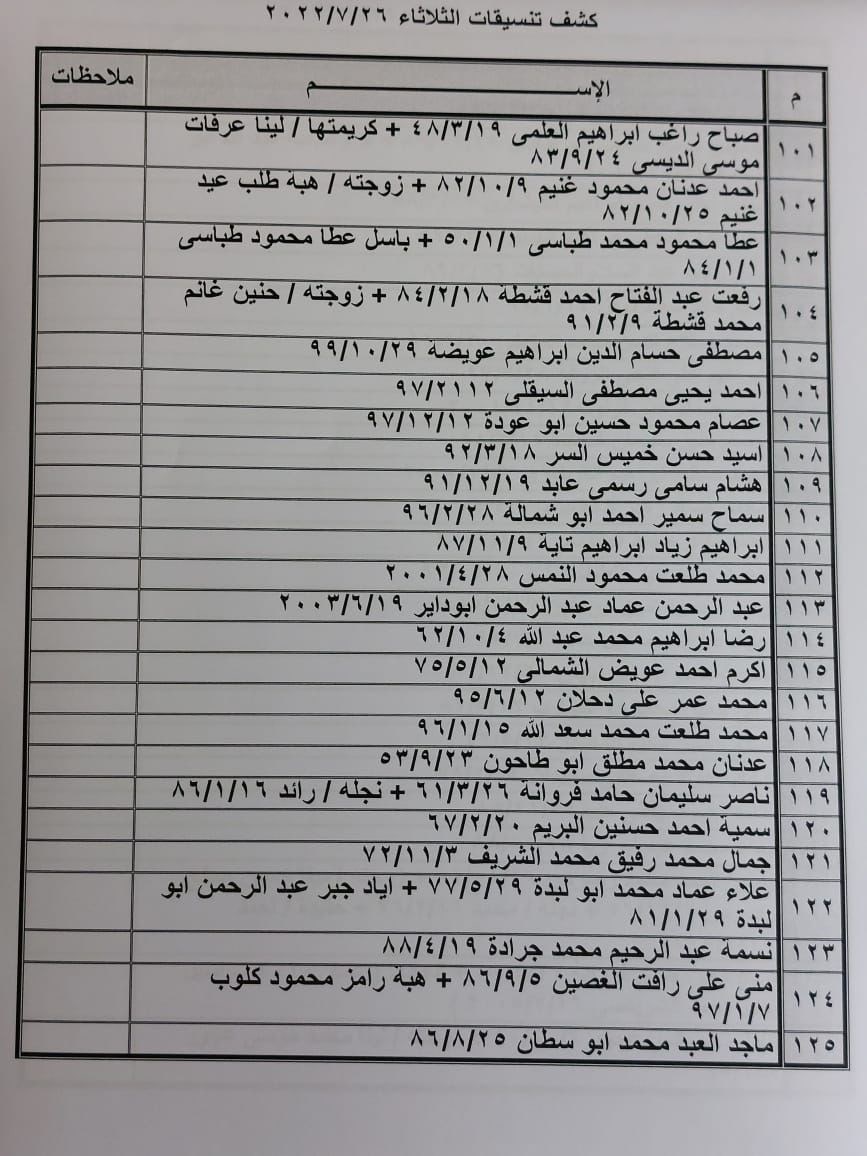 كشف تنسيقات الثلاثاء ٢٠٢٢/٧/٢٦
م الإســـم ملاحظات
١٠١ صباح راغب ابراهيم العلمى ٤٨/٣/١٩ + كريمتها / لينا عرفات
موسى الديسى ٨٣/٩/٢٤
١٠٢ احمد عدنان محمود غنيم ٨٢/١٠/٩ + زوجته / هبة طلب عيد
غنيم ٨٢/١٠/٢٥
١٠٣ عطا محمود محمد طباسى ٥٠/١/١ + باسل عطا محمود طباسى
٨٤/١/١
١٠٤ رفعت عبد الفتاح احمد قشطة ٨٤/٢/١٨ + زوجته / حنين غانم
محمد قشطة ٩١/٢/٩
١٠٥ مصطفى حسام الدين ابراهيم عويضة ٩٩/١٠/٢٩
١٠٦ احمد يحيى مصطفى السيقلى ٩٧/٢١١٢
١٠٧ عصام محمود حسين ابو عودة ٩٧/١٢/١٢
١٠٨ اسيد حسن خميس السر ٩٢/٣/١٨
١٠٩ هشام سامى رسمى عابد ٩١/١٢/١٩
١١٠ سماح سمير احمد ابو شمالة ٩٦/٢/٢٨
١١١ ابراهيم زياد ابراهيم تاية ٨٧/١١/٩
١١٢ محمد طلعت محمود النمس ٢٠٠١/٤/٢٨
١١٣ عبد الرحمن عماد عبد الرحمن ابوداير ٢٠٠٣/٦/١٩
١١٤ رضا ابراهيم محمد عبد الله ٦٢/١٠/٤
١١٥ اكرم احمد عويض الشمالى ٧٥/٥/١٢
١١٦ محمد عمر على دحلان ٩٥/٦/١٢
١١٧ محمد طلعت محمد سعد الله ٩٦/١/١٥
١١٨ عدنان محمد مطلق ابو طاحون ٥٣/٩/٢٣
١١٩ ناصر سليمان حامد فروانة ٦١/٣/٢٦ + نجله / رائد ٨٦/١/١٦
١٢٠ سمية احمد حسنين البريم ٦٧/٢/٢٠
١٢١ جمال محمد رفيق محمد الشريف ٧٢/١١/٣
١٢٢ علاء عماد محمد ابو لبدة ٧٧/٥/٢٩ + اياد جبر عبد الرحمن ابو
لبدة ٨١/١/٢٩
١٢٣ نسمة عبد الرحيم محمد جرادة ٨٨/٤/١٩
١٢٤ منى على رافت الغصين ٨٦/٩/٥ + هبة رامز محمود كلوب
٩٧/١/٧
١٢٥ ماجد العبد محمد ابو سطان ٨٦/٨/٢٥